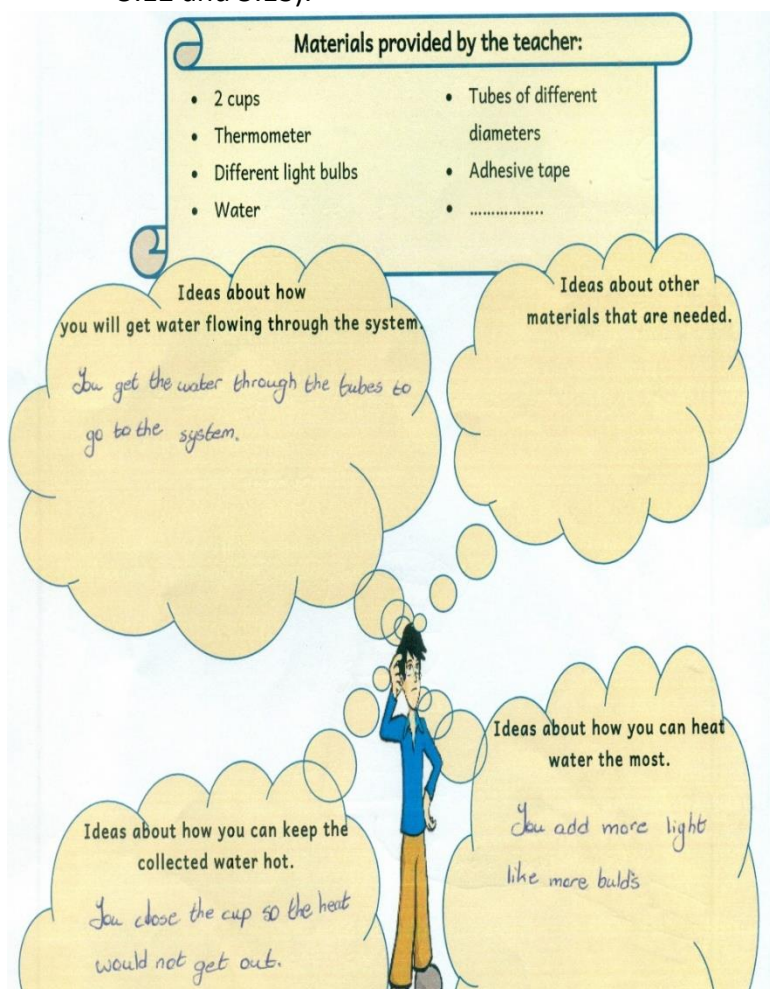 Materials provided by the teacher:
• 2 cups
• Thermometer
• Different light bulbs
• Water
• Tubes of different
diameters
• Adhesive tape
• ..................
Ideas about how
you will get water flowing through the system.
You get the water through the tubes to
go to the system.
Ideas about other
materials that are needed.
Ideas about how you can heat
water the most.
You add more light
like more buld's
Ideas about how you can keep the
collected water hot.
You close the cup so the heat
would not get out.